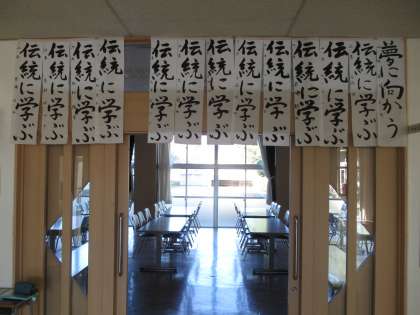 夢に向かう
伝統に学ぶ
伝統に学ぶ
伝統に学ぶ
伝統に学ぶ
伝統に学ぶ
伝統に学ぶ
伝統に学ぶ
伝統に学ぶ
伝統に学ぶ
伝統に学ぶ
伝統に学ぶ
伝統に学ぶ